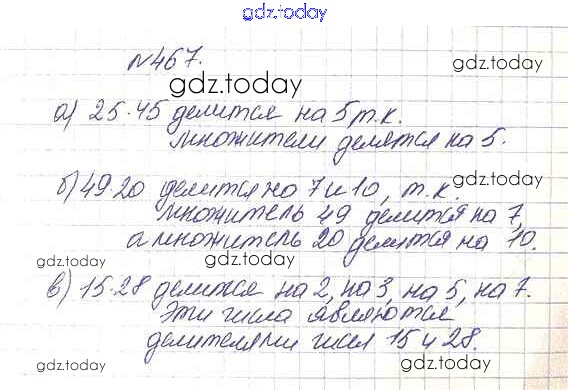 gdz.today
№467.
gdz.today
gdz.today
а) 25·45 делится на 5 т.к.
множители делятся на 5.
gdz.today
б) 49·20 делится на 7 и 10, т.к.
множитель 49 делится на 7,
а множитель 20 делится на 10.
gdz.today
gdz.today
в) 15·28 делится на 2, на 3, на 5, на 7.
Эти числа являются
делителями чисел 15 и 28.
gdz.today
gdz.today